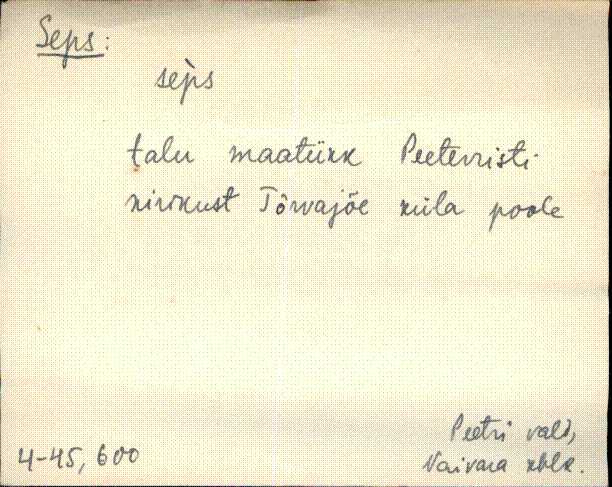 Seps:
sèps
talu maatükk Peeterristi
kirikust Tõrvajõe küla poole
Peetri vald,
4-45, 600
Vaivara khlk.